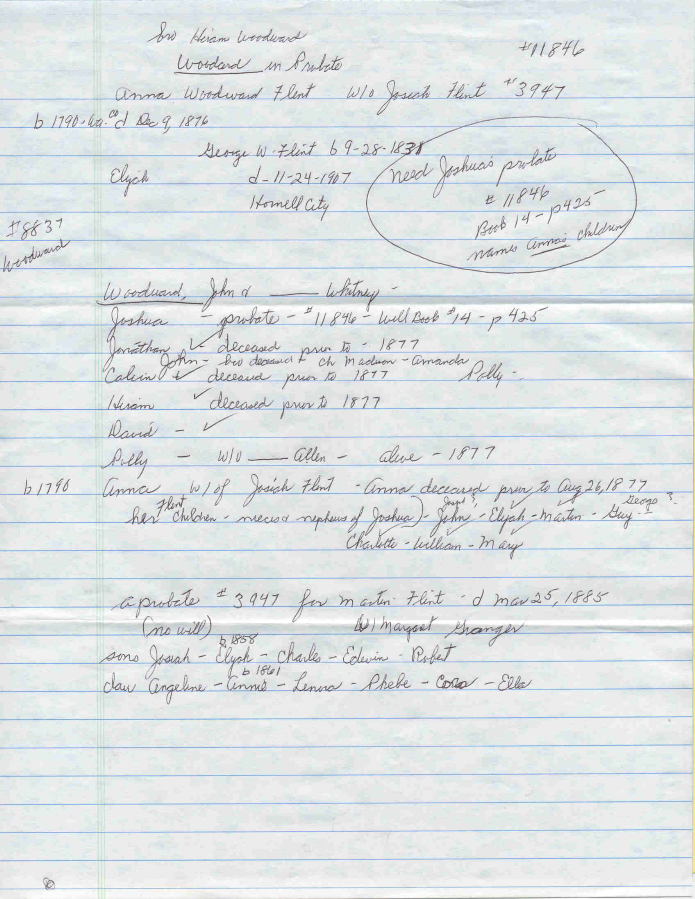 bro Hiram Woodward
#11846
Woodard in Probate
Anna Woodward Flint W/O Josiah Flint #3947
b 1790 - Wa. Co d Dec 9, 1876
George W. Flint b 9-28-1831
Elyah d-11-24-1907
Hornell City
need Joshua's probate
#11846
Book 14 - p425
names Anna's children
#8837
Woodward
Woodward, John & ____ Whitney -
Joshua - probate - #11846 - Will Book #14 - p 425
Jonathan ✓ deceased prior to - 1877
John - bro deceased & ch Madison - Amanda
Calvin ✓ deceased prior to 1877 Polly -
Hiram ✓ deceased prior to 1877
David - ✓
Polly - W/O ____ Allen - alive - 1877
b 1790 Anna W/ of Josiah Flint - Anna deceased prior to Aug 26, 1877
her Flint children - nieces & nephews of Joshua) - John - Elyah - Martin - Guy George ?
Charlotte - William - Mary
a probate #3947 for Martin Flint - d Mar 25, 1885
(no will) W/ Margaret Granger
b 1858
sons Josiah - Elyah - Charles - Edwin - Robert
b 1861
dau Angeline - Annis - Lenora - Phebe - Cora - Ella